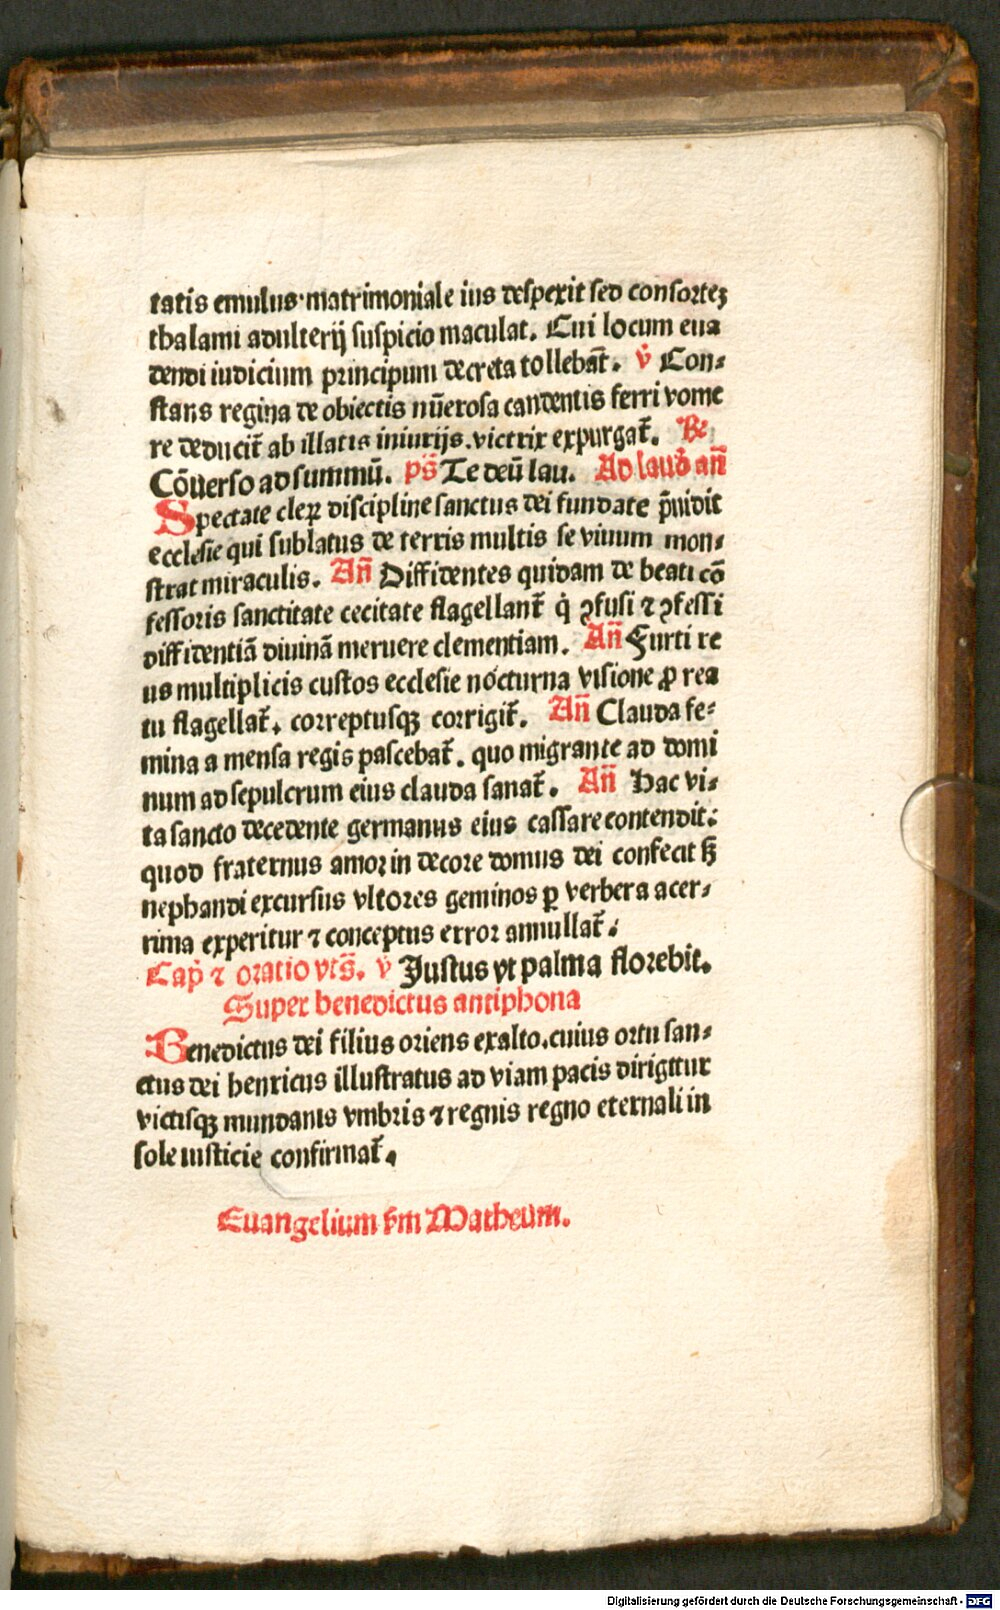 tatis emulus·matrimoniale ius despexit sed consorteꝫ
thalami adulterij suspicio maculat. Cui locum eua
dendi iudicium principum decreta tollebat̃. v̾ Con-
stans regina de obiectis nũerosa candentis ferri vome
re deducit̃ ab illatis iniurijs.victrix expurgat̃. Re
Cõuerso ad summũ. ps̃ Te deũ lau. Ad laud̾ añ
Spectate cleꝝ discipline sanctus dei fundate p̃uidit
ecclesie qui sublatus de terris multis se viuum mon-
strat miraculis. Añ Diffidentes quidam de beati cõ
fessoris sanctitate cecitate flagellant̃ q̇ ꝯfusi ⁊ ꝯfessi
diffidentiã diuinã meruere clementiam. Añ Furti re
us multiplicis custos ecclesie nocturna visione ꝓ rea
tu flagellat̃. correptusqꝫ corrigit̃. Añ Clauda fe-
mina a mensa regis pascebat̃. quo migrante ad domi
num ad sepulcrum eius clauda sanat̃. Añ Hac vi-
ta sancto decedente germanus eius cassare contendit:
quod fraternus amor in decore domus dei confecit sꝫ
nephandi excursus vltores geminos ꝑ verbera acer-
rima experitur ⁊ conceptus error annullat̃.
Cap̾ ⁊ oratio vts̃. v̾ Justus vt palma florebit.
Super benedictus antiphona
Benedictus dei filius oriens exalto.cuius ortu san-
ctus dei henricus illustratus ad viam pacis dirigitur
victisqꝫ mundanis vmbris ⁊ regnis regno eternali in
sole iusticie confirmat̃.
Euangelium s̃m Matheum.
Digitalisierung gefördert durch die Deutsche Forschungsgemeinschaft - DFG